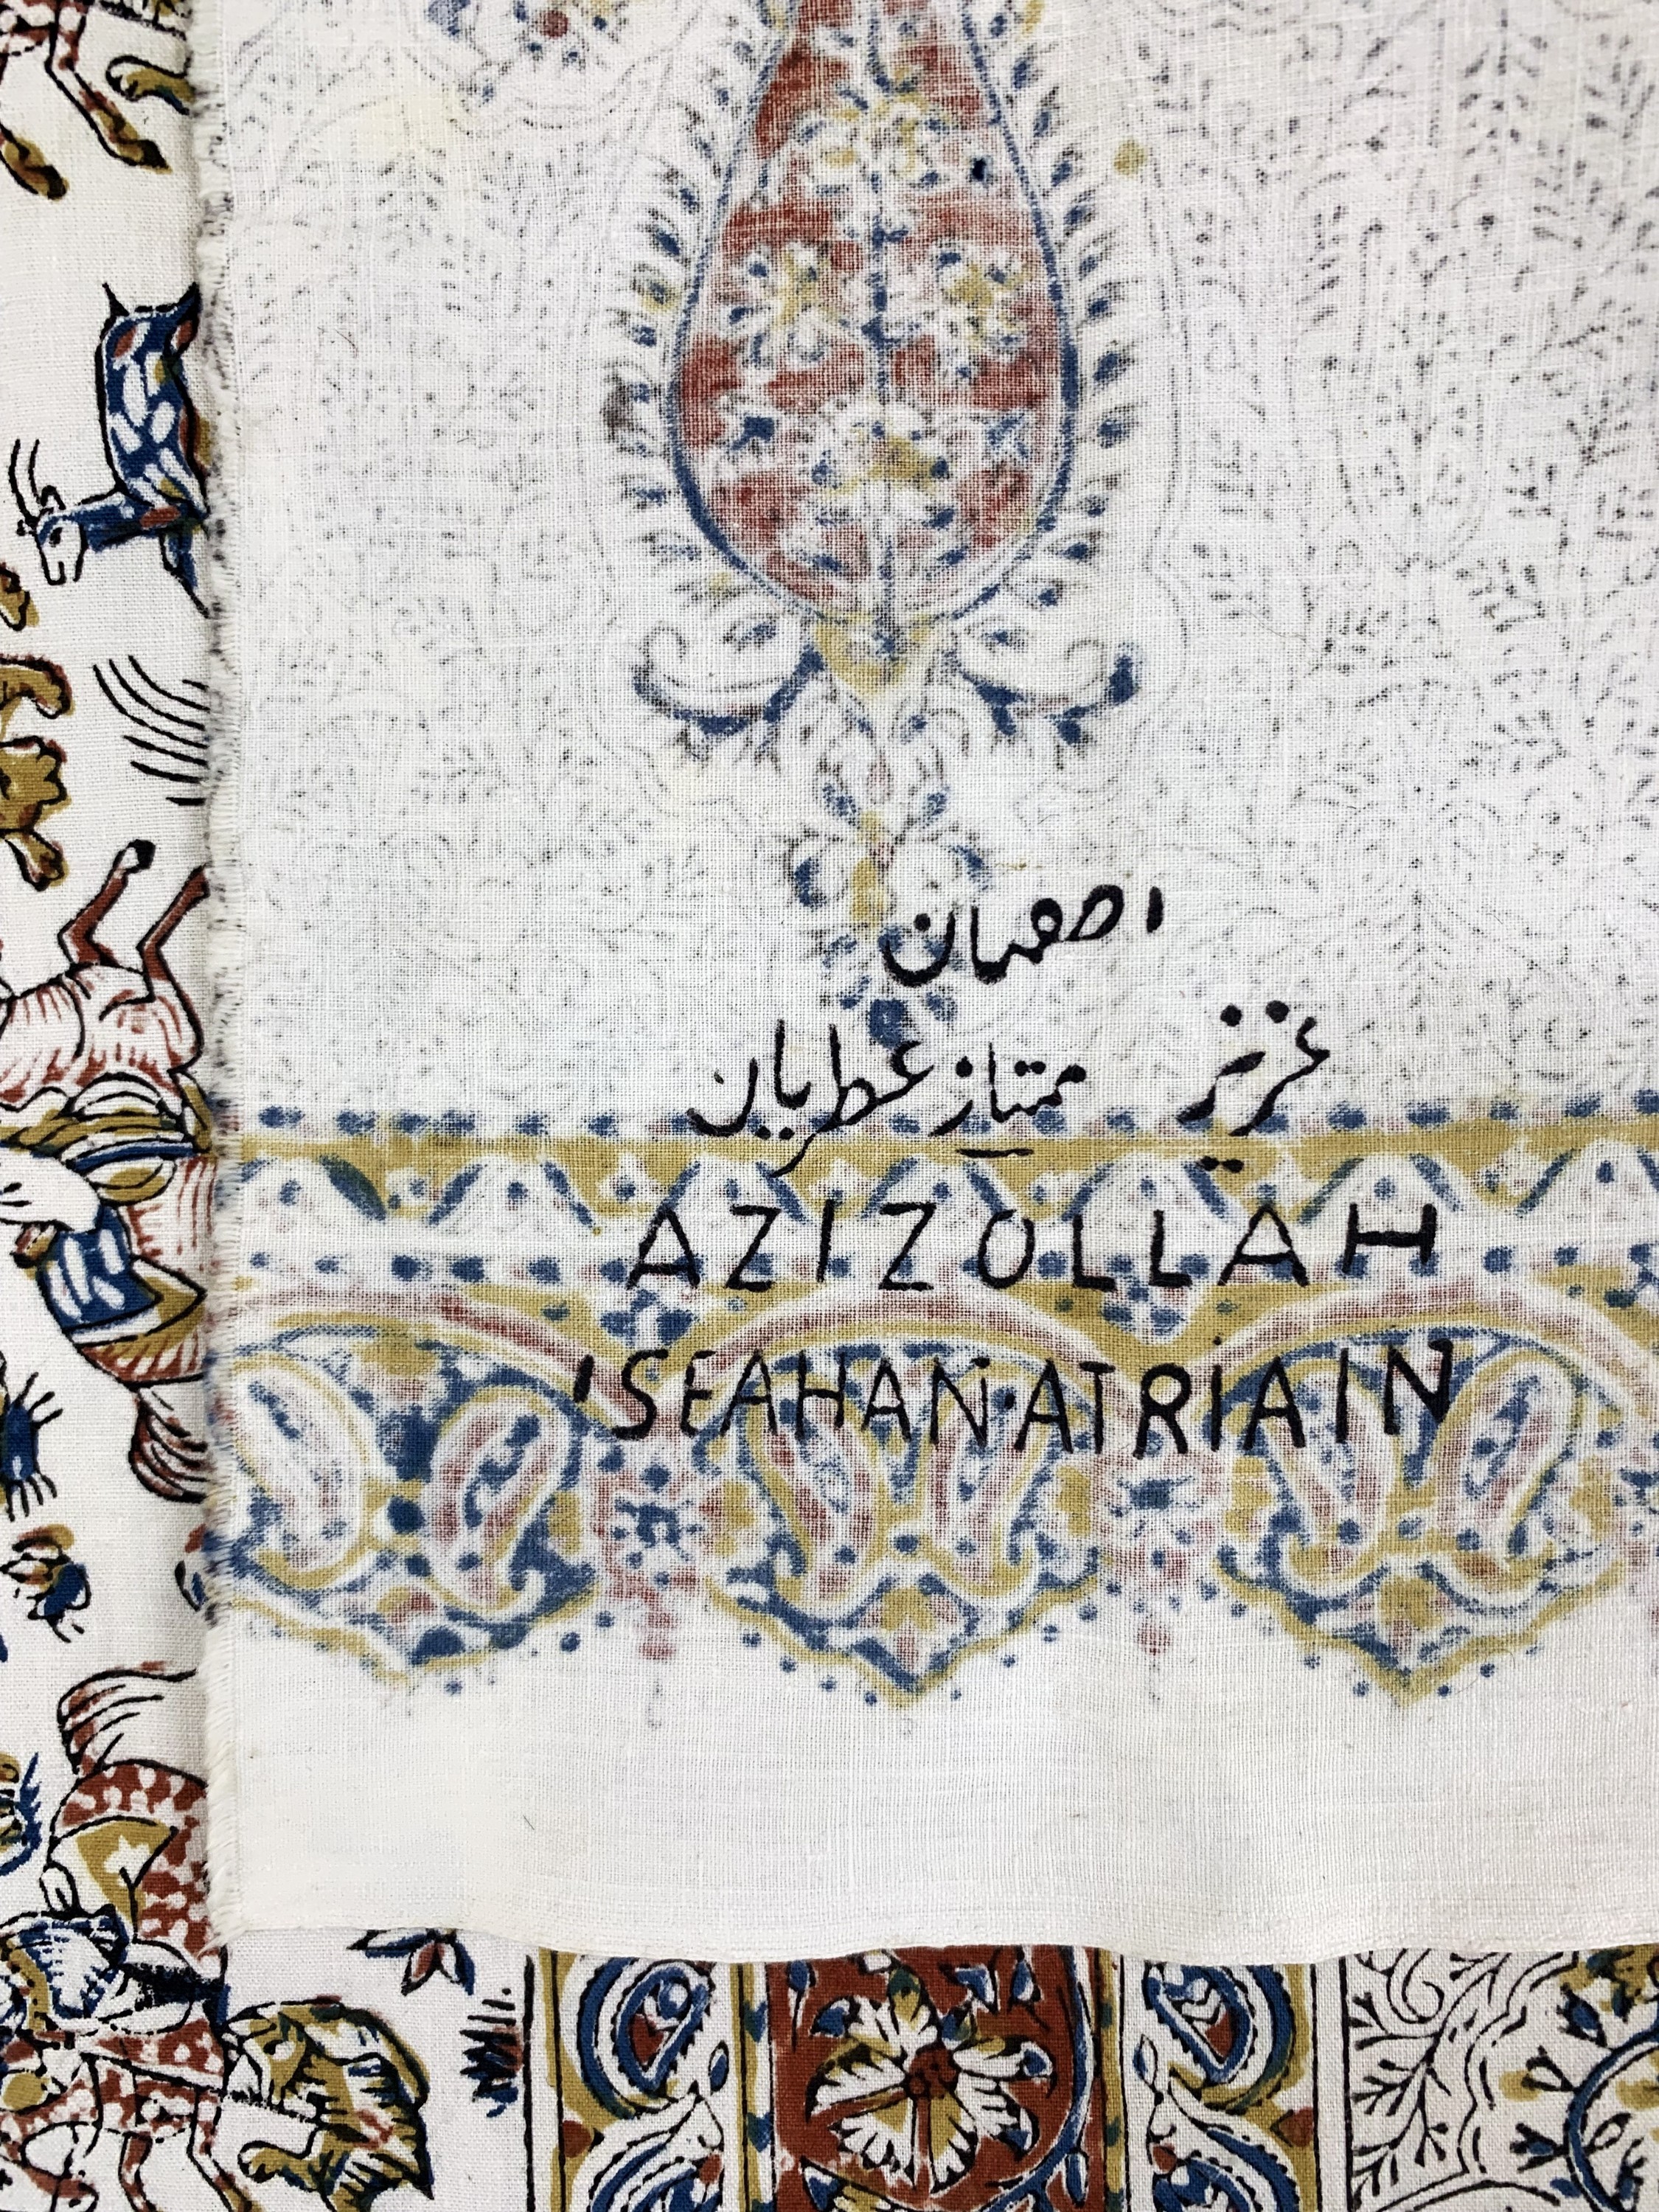 اصفهان
عزیز ممتاز عطریان
AZIZOLLAH
'SEAHAN·ATRIAIN